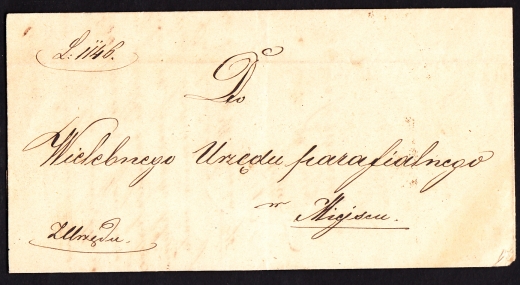 L: 1146.
Do
Wielebnego Urzędu parafialnego
w
Miejscu.
Z Urzędu.